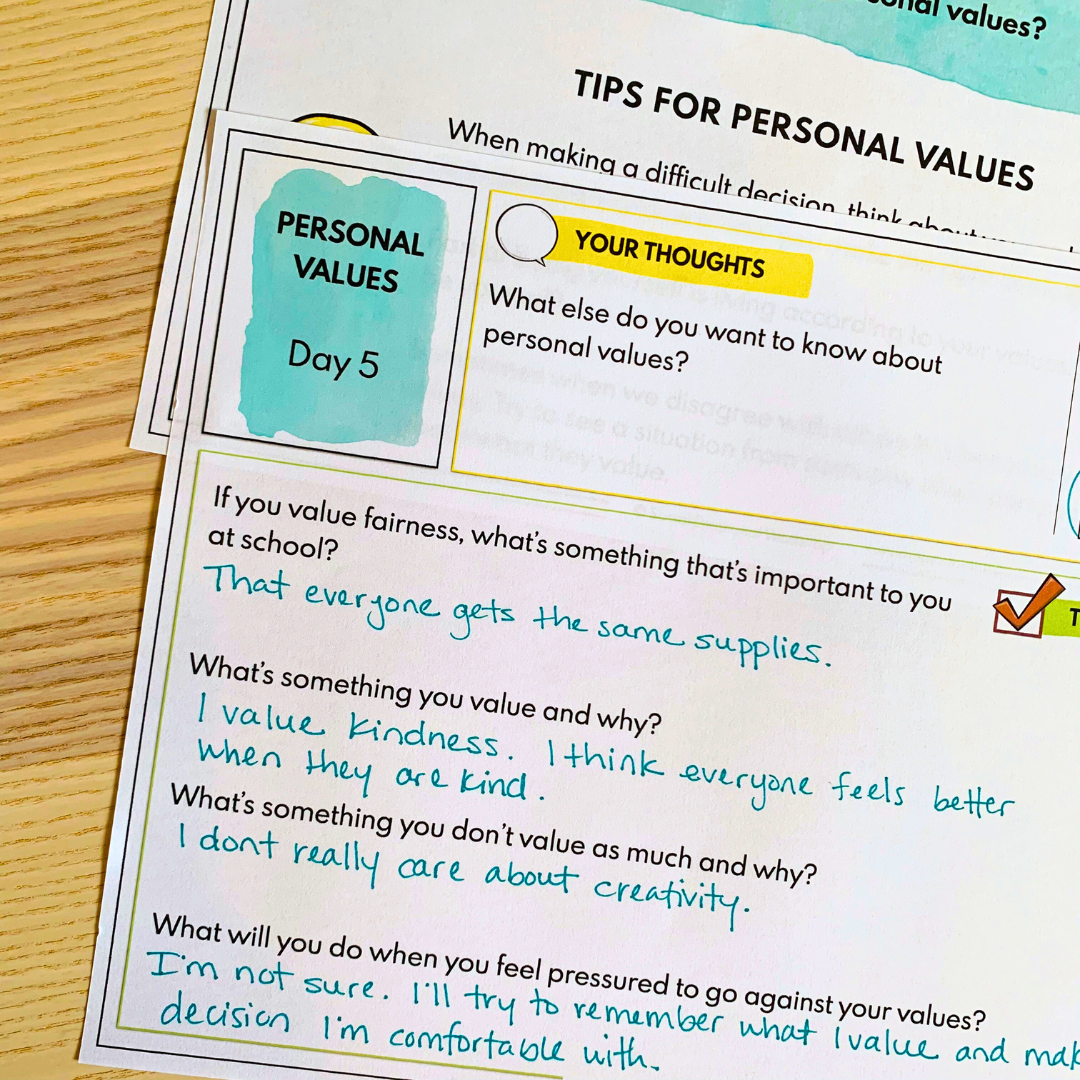 values?
TIPS FOR PERSONAL VALUES
When making a difficult decision, think about
PERSONAL
VALUES
Day 5
YOUR THOUGHTS
What else do you want to know about
personal values?
If you value fairness, what's something that's important to you
at school?
That everyone gets the same supplies.
What's something you value and why?
I value kindness. I think everyone feels better
when they are kind.
What's something you don't value as much and why?
I dont really care about creativity.
What will you do when you feel pressured to go against your values?
I'm not sure. I'll try to remember what I value and
decision I'm comfortable with.